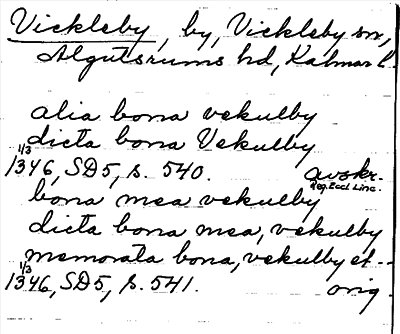 Vickleby, by, Vickleby sn,
Algutsrums hd, Kalmar l.
alia bona vekulby
dicta bona Vekulby
1/3
1346, SD5, s. 540. avskr.
Reg. Eccl. Linc.
bona mea vekulby
dicta bona mea, vekulby
memorata bona, vekulby et --
1/3
1346, SD5, s. 541. orig